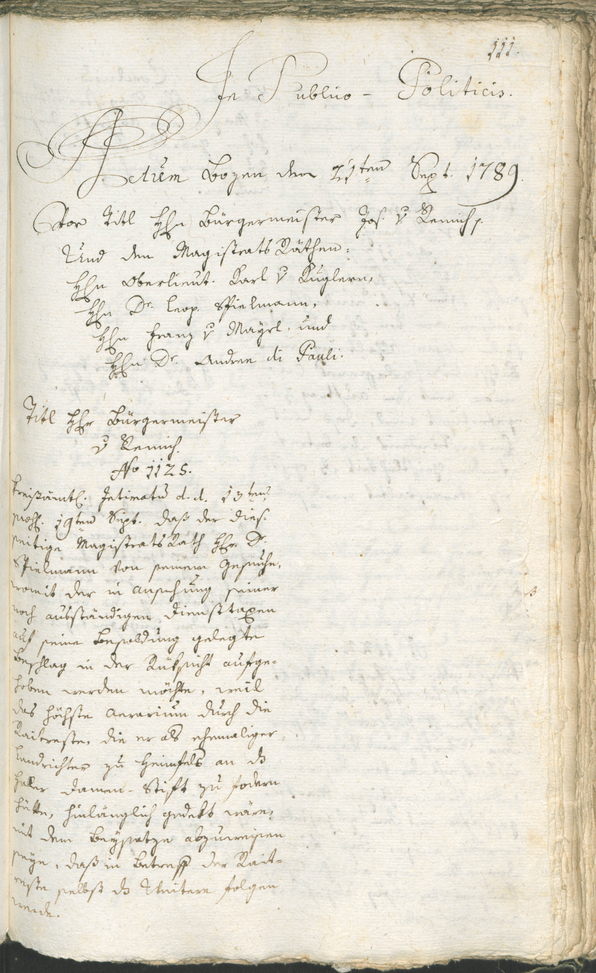 111.
In Publico-Politicis.
Actum Bozen den 21ten Sept. 1789.
Cor. Titl Hhn Bürgermeister Jos. v Remich,
Und den Magistrats Räthen:
Hhn Oberlieut. Karl v Kuglern,
Hhn Dr. Leop. Spielmann,
Hhn Franz v Mayrl. und
Hhn Dr. Andree di Pauli.
Titl Hhr Bürgermeister
v Remich.
No 1125.
Kreisämtl. Intimatum d.d. 15ten
19ten Sept. daß der dies-
seitige Magistrats Rath Hhr. Dr.
Spielmann von seinem Gesuche,
womit der in Ansehung seiner
noch ausständigen Diensttaxen
auf seine Besoldung gelegte
Beschlag in der Rüksicht aufge-
hoben werden möchte, weil
das höchste Aerarium durch die
Raitreste, die er als ehemaliger
Landrichter zu Heimfels an ds
Haller Damen-Stift zu fodern
hätte, hinlänglich gedekt wäre,
mit dem Beysatze abzuweisen
seye, daß in Betreff der Rait-
reste selbst ds Weitere folgen
werde.